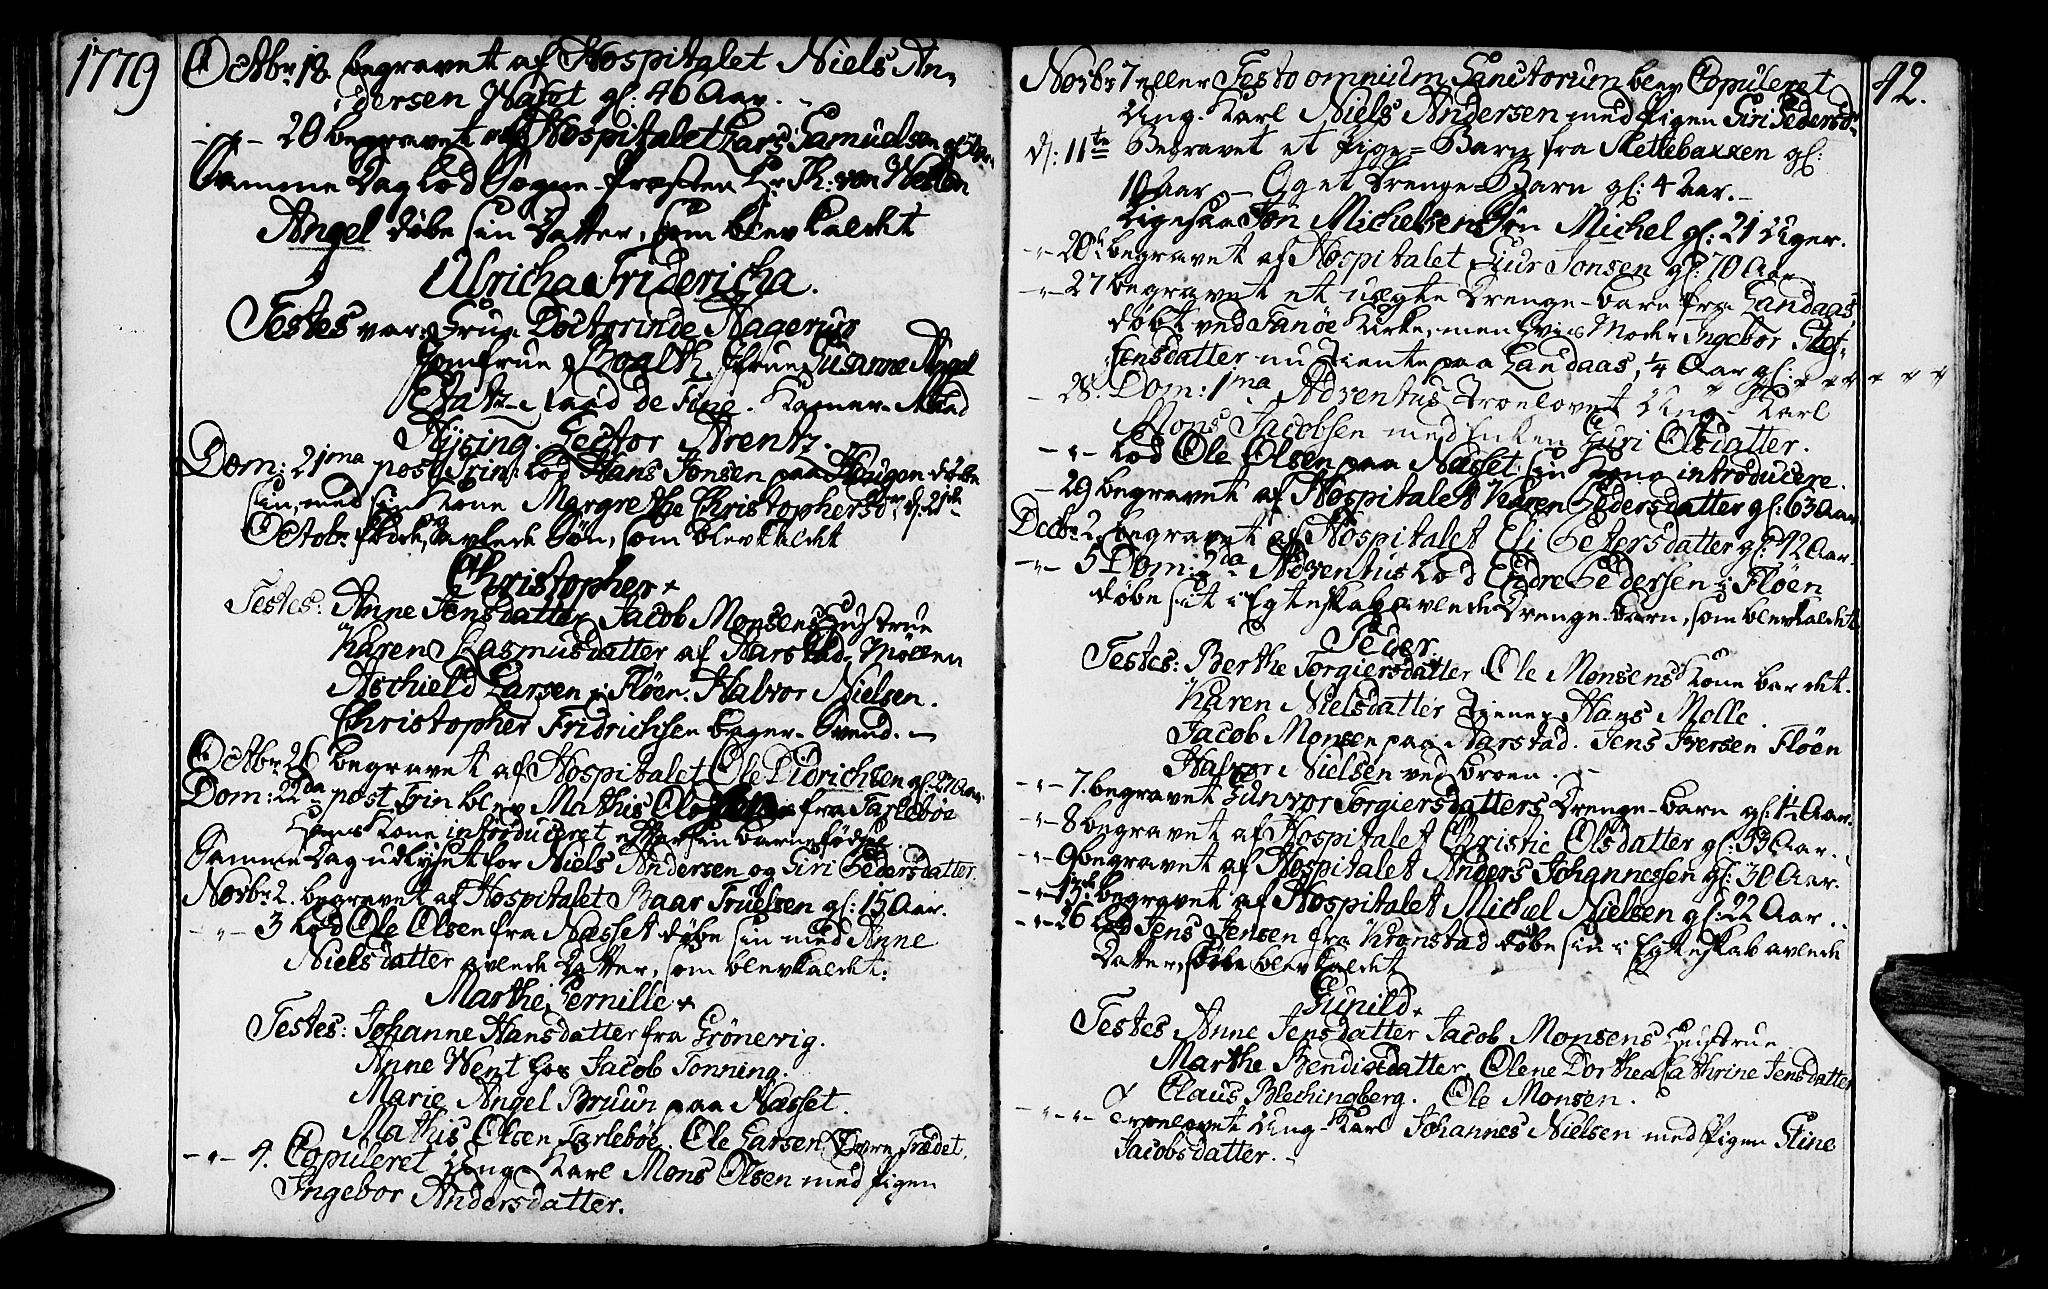 1779
Octbr 18. begravet af Hospitalet Niels An-
dersen Nasset gl: 46 Aar.
- - 20 begravet af Hospitalet Lars Samuelsen gl:
Samme Dag lod Sogne-Præsten Hr Th: von Westen
Angel døbe sin Datter, som blev kaldet
Ulricha Fridericha.
Testes var: Frue Doctorinde Hagerup
Jomfrue Boalth. Frue Susanne Angel
Etatz-Raad de Fine. Kamer-Raad
Hysing. Lector Arentz.
Dom: 21ma post Trin: lod Hans Jonsen paa Haugen døbe
sin, med sin Kone Margrethe Christophersdr, d: 21de
Octobr fødde, avlede Søn, som blev kaldet
Christopher +
Testes: Anne Jensdatter Jacob Monsens Hustrue
Karen Rasmusdatter af Aarstad-Møllen
Aschield Larsen i Fløen. Halvor Nielsen.
Christopher Fridrichsen bager-Svend. -
Octbr 26 begravet af Hospitalet Ole Didrichsen gl: 27 Aar
Dom: 22da post Trin blev Mathis Olsens fra Tarlebøe
Hans Kone introduceret efter sin barnefødsel.
Samme Dag udlyst for Niels Andersen og Siri Pedersdatter.
Novbr 2. begravet af Hospitalet Baar Truelsen gl: 15 Aar.
- " - 3 lod Ole Olsen fra Næsset døbe sin med Anne
Nielsdatter avlede Datter, som blev kaldet:
Marthe Pernille +
Testes: Johanne Hansdatter fra Grönevig.
Anne Went hos Jacob Tonning.
Marie Angel Bruun paa Næsset.
Mathis Olsen Tarlebøe. Ole Larsen Øvre Frædet.
- " - 4. Copuleret Ung-Karl Mons Olsen med Pigen
Ingebor Andersdatter.
42.
Novbr 7 eller Festo omnium Sanctorum blev Copuleret
Ung-Karl Niels Andersen med Pigen Siri Pedersdr
d: 11te Begravet et Pige-Barn fra Slettebakken gl:
10 Aar - Og et Drenge-Barn gl: 4 Aar. -
Ligesaa Jon Michelsens Søn Michel gl: 21 Uger.
- " - 20de begravet af Hospitalet Siur Jonsen gl: 70 Aar
- " - 27 begravet et uægte Drenge-barn fra Landaas,
døbt ved Fanøe Kirke, men hvis Moder Ingebor Stef-
fensdatter nu tiente paa Landaas, 1/4 Aar gl:
- 28. Dom: 1ma Adventus Troelovet Ung-Karl
Mons Jacobsen med Enken Guri Olsdatter.
- " - lod Ole Olsen paa Næsset sin Kone introducere.
- 29 begravet af Hospitalet Karen Pedersdatter gl: 63 Aar.
Decbr 2. begravet af Hospitalet Eli Petersdatter gl: 42 Aar.
- " - 5 Dom: 2da Adventus lod Endre Pedersen i Fløen
døbe sit i Egteskab avlede Drenge-barn, som blev kaldet
Peder.
Testes: Berthe Torgiersdatter Ole Monsens Kone bar det.
Karen Nielsdatter tiener Hans Molle.
Jacob Monsen paa Aarstad. Jens Iversen Fløen
Halvor Nielsen ved broen. -
- " - 7. begravet Gunvor Torgiersdatters Drenge-barn gl: Aar.
- " - 8 begravet af Hospitalet Christie Olsdatter gl: 33 Aar.
- " - 9 begravet af Hospitalet Anders Johannessen gl: 30 Aar.
- " - 13de begravet af Hospitalet Michel Nielsen gl: 22 Aar.
- " - 26 lod Jens Jensen fra Kronstad døbe sin i Egteskab avlede
Datter, som blev kaldet
Gunild +
Testes Anne Jensdatter Jacob Monsens Hustrue
Marthe Bendixdatter. Olene Dorthea Cathrine Jensdatter
Claus Blechingberg. Ole Monsen.
- " - " - Troelovet Ung-Karl Johannes Nielsen med Pigen Stine
Jacobsdatter. -